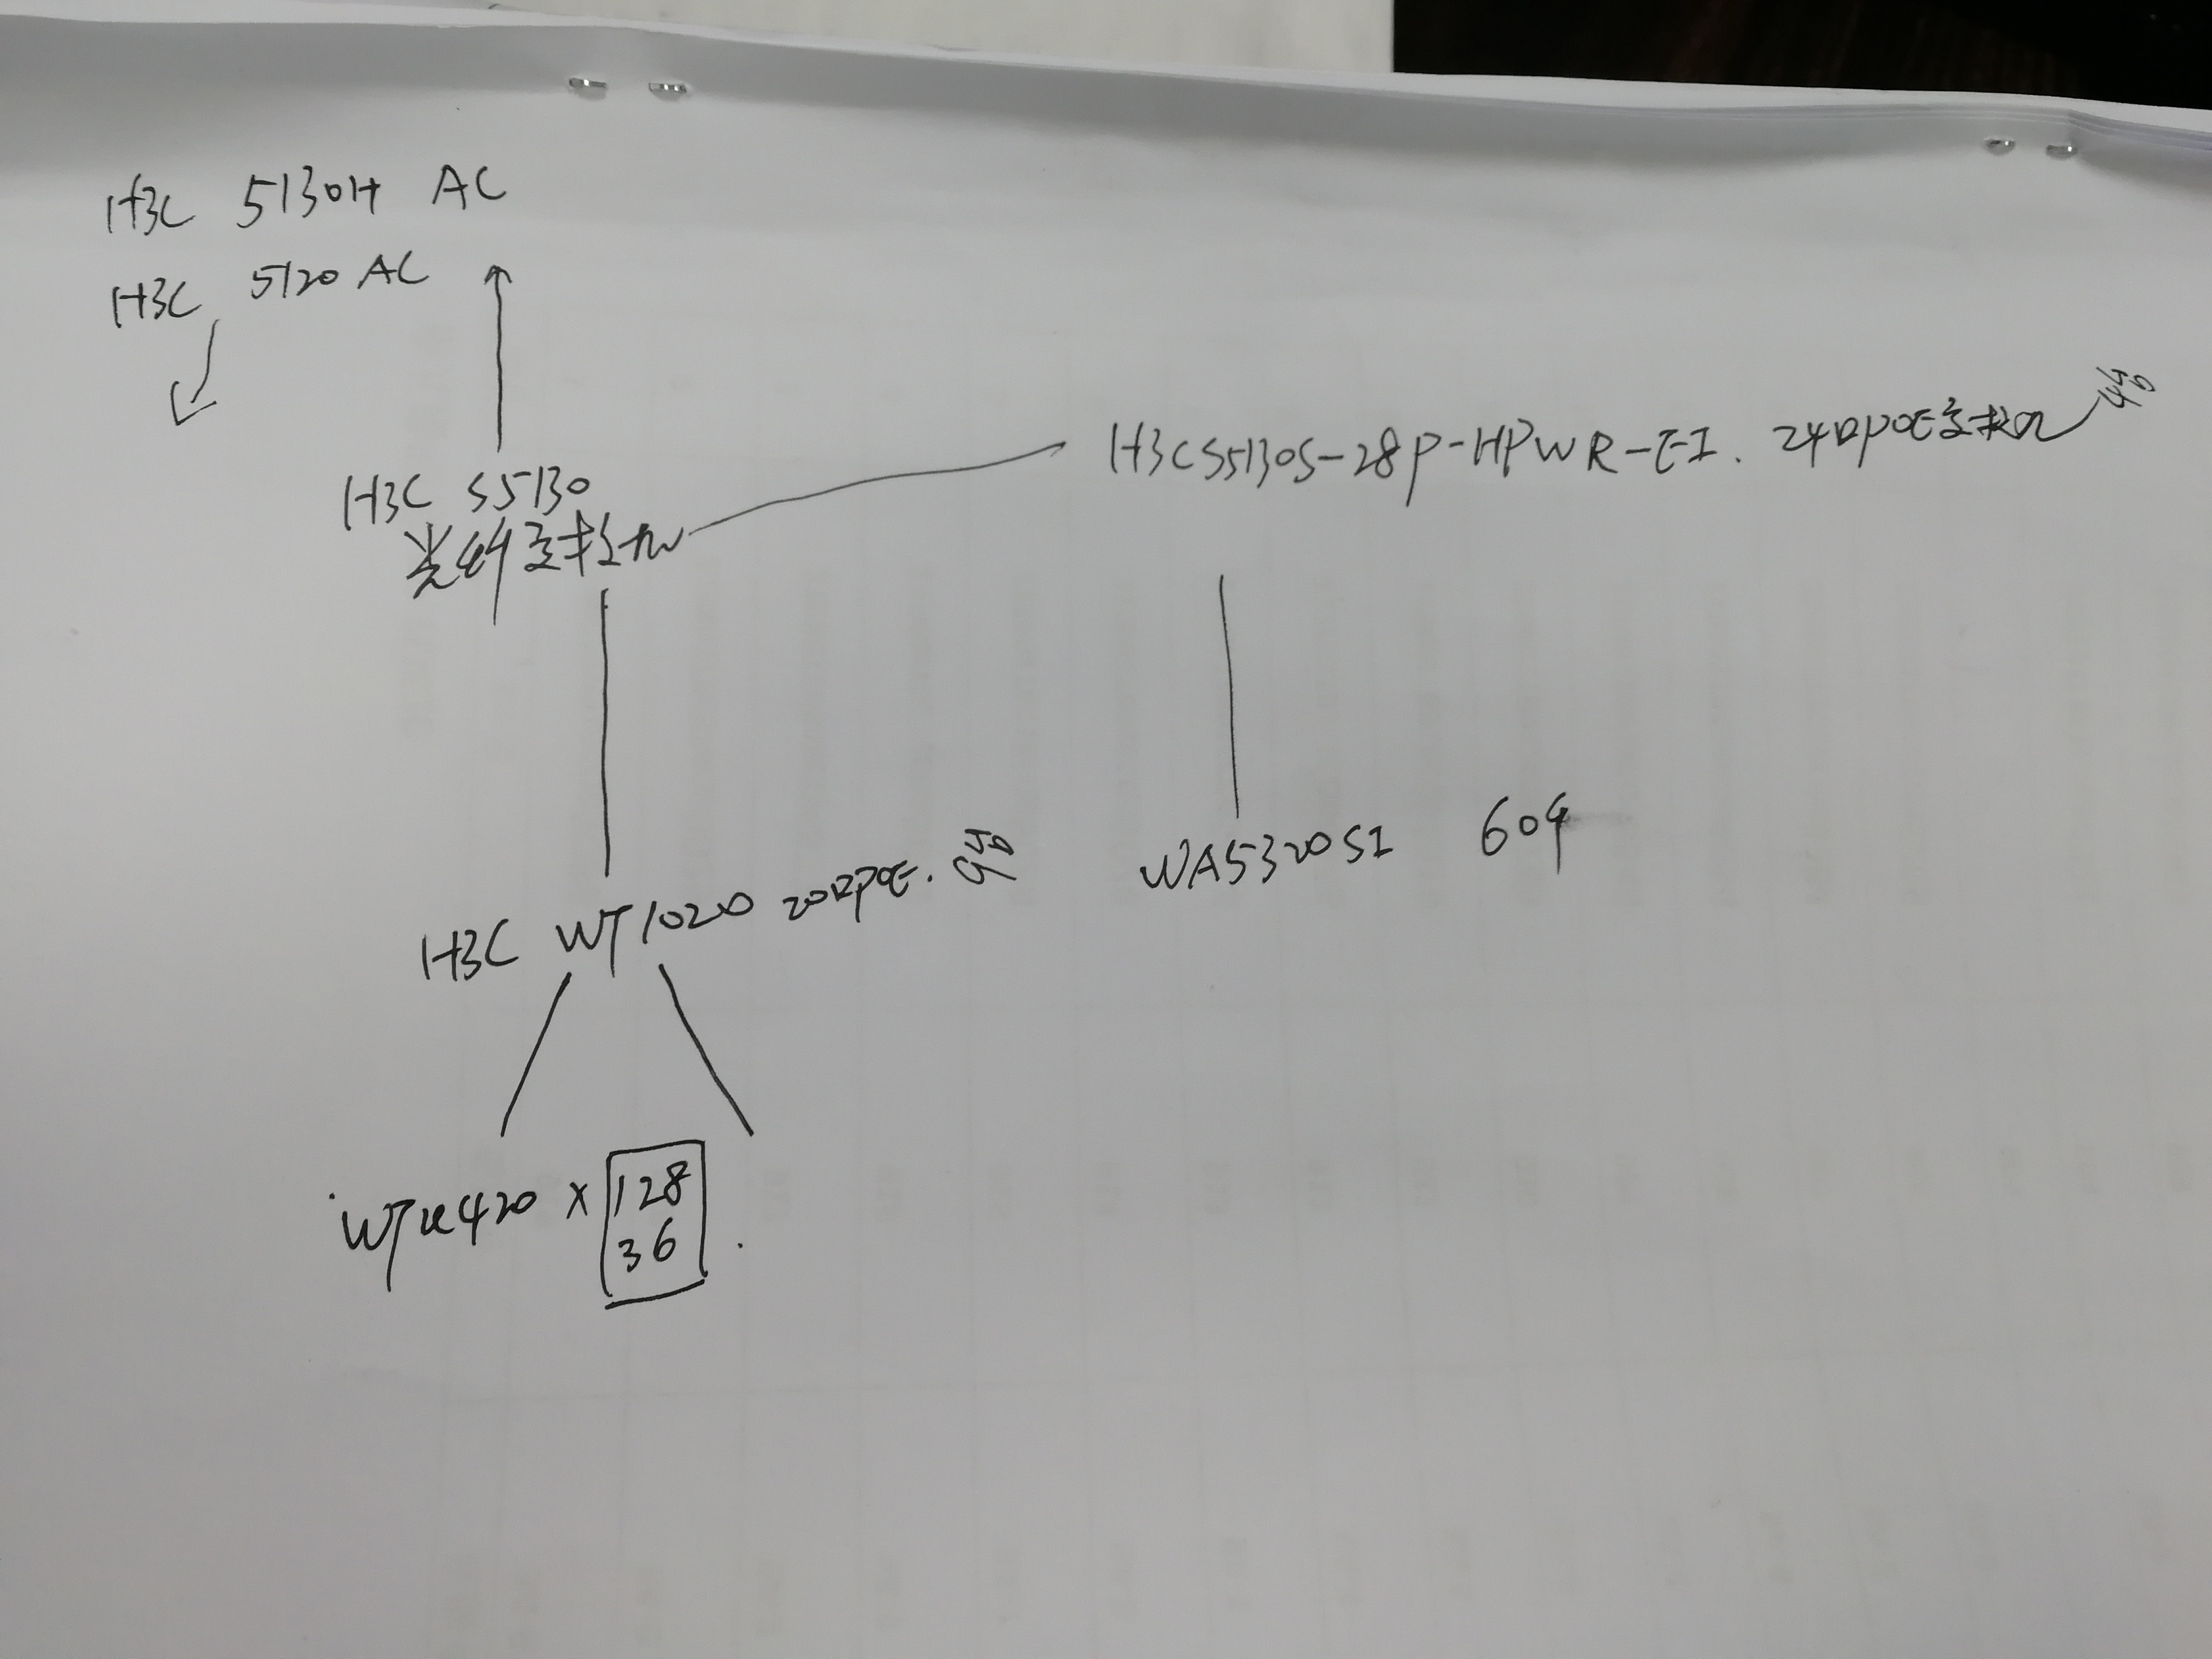 H3C 5130H AC
H3C 5120 AC
H3C S5130
光纤交换机
H3CS5130S-28P-HPWR-EI. 24口POE交换机
H3C WT1020 20口POE.
WA5320SI 60个
WTU420 × 128
36